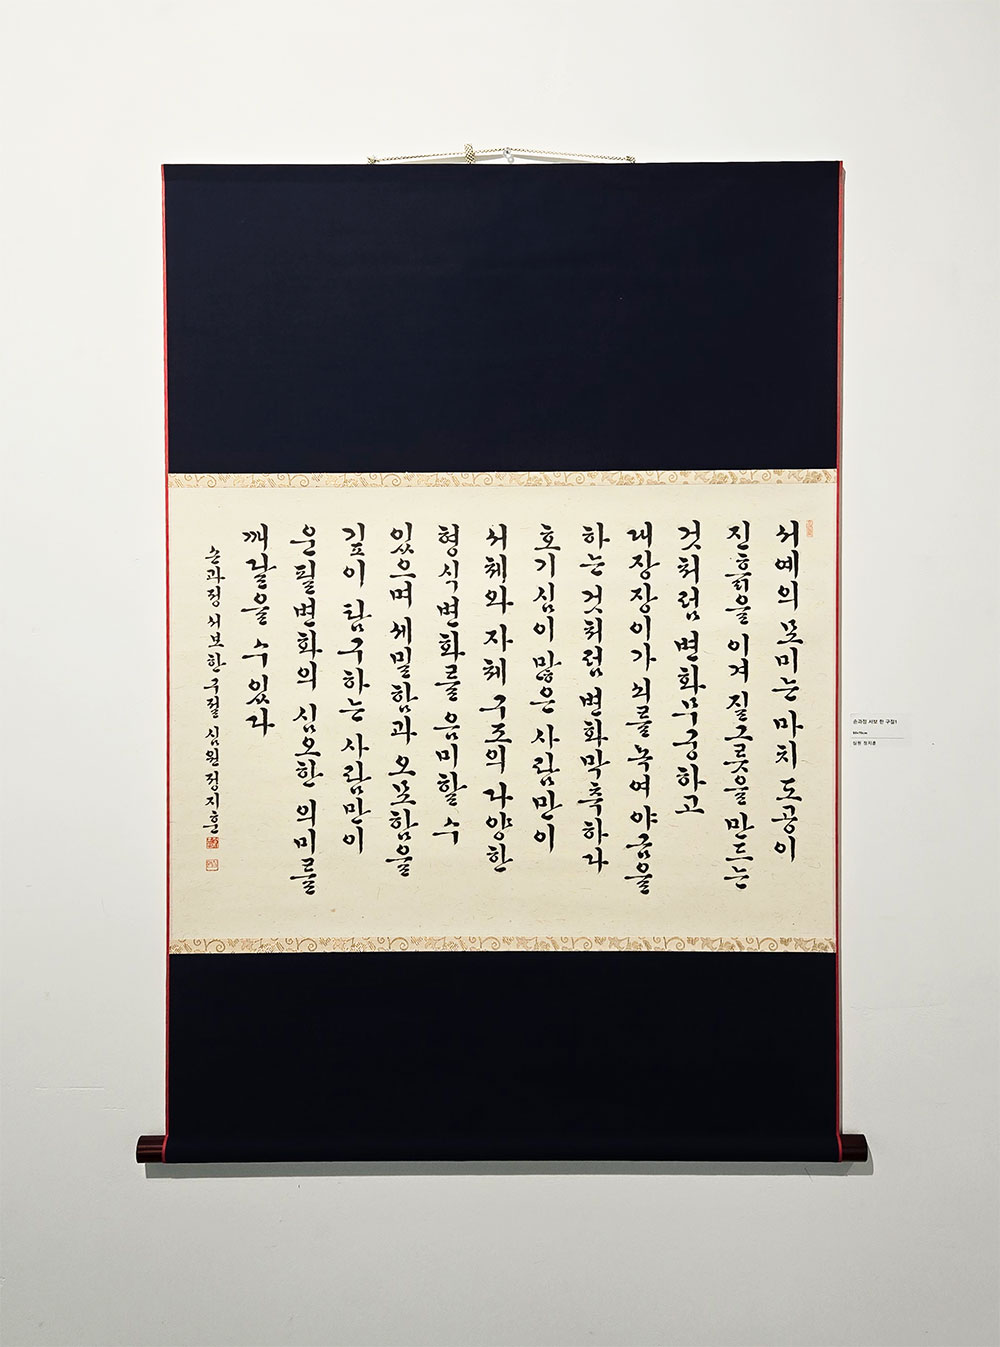 서예의 묘미는 마치 도공이
진흙을 이겨 질그릇을 만드는
것처럼 변화무궁하고
대장장이가 쇠를 녹여 야금을
하는 것처럼 변화막측하다
호기심이 많은 사람만이
서체와 자체 구조의 다양한
형식변화를 음미할 수
있으며 세밀함과 오묘함을
깊이 탐구하는 사람만이
운필변화의 심오한 의미를
깨달을 수 있다
손과정 서보 한 구절 심원 정지훈
손과정 서보 한 구절1
심원 정지훈